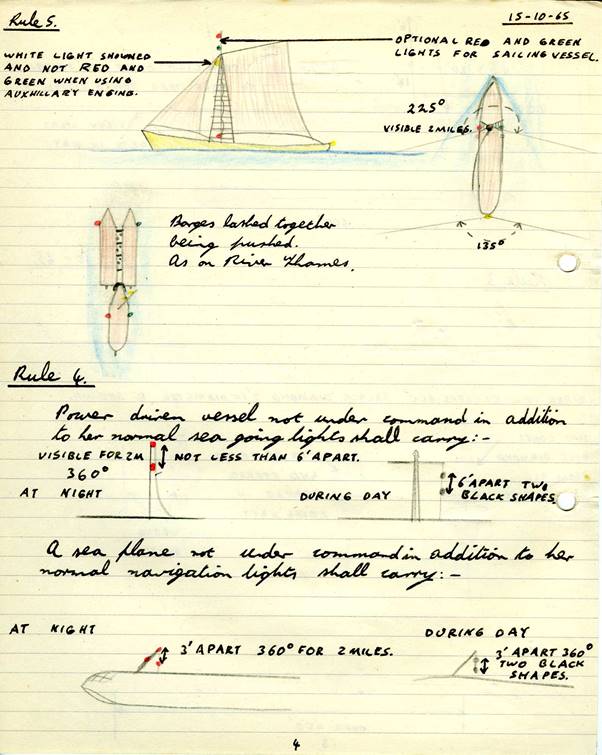 Rule 5.
15-10-65
WHITE LIGHT SHOWNED
AND NOT RED AND
GREEN WHEN USING
AUXHILLARY ENGINE.
OPTIONAL RED AND GREEN
LIGHTS FOR SAILING VESSEL.
225°
VISIBLE 2 MILES.
135°
Barges lashed together
being pushed.
As on River Thames.
Rule 4.
Power driven vessel not under command in addition
to her normal sea going lights shall carry:-
VISIBLE FOR 2M
360°
NOT LESS THAN 6' APART.
AT NIGHT
DURING DAY
6' APART TWO
BLACK SHAPES
A sea plane not under command in addition to her
normal navigation lights shall carry:-
AT NIGHT
3' APART 360° FOR 2 MILES.
DURING DAY
3' APART 360°
TWO BLACK
SHAPES.
4